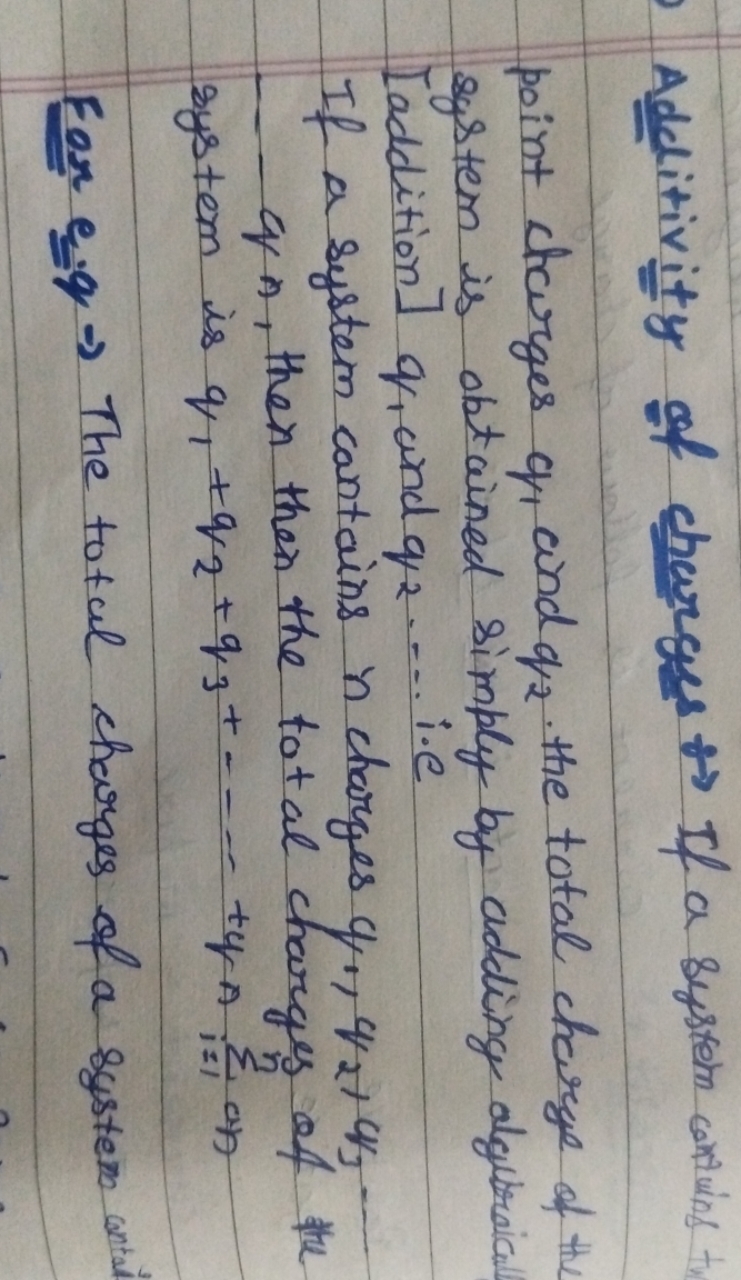 Additivity of charges → If a system contains
point charges q1 and q2. the total charge of the
system is obtained simply by adding algebraically
[addition] q1 and q2 ---- i.e
If a system contains n charges q1, q2, q3 --
-- qn, then then the total charges of the
system is q1 + q2 + q3 + ---- + qn n Σ i=1 qn
For e.g → The total charges of a system